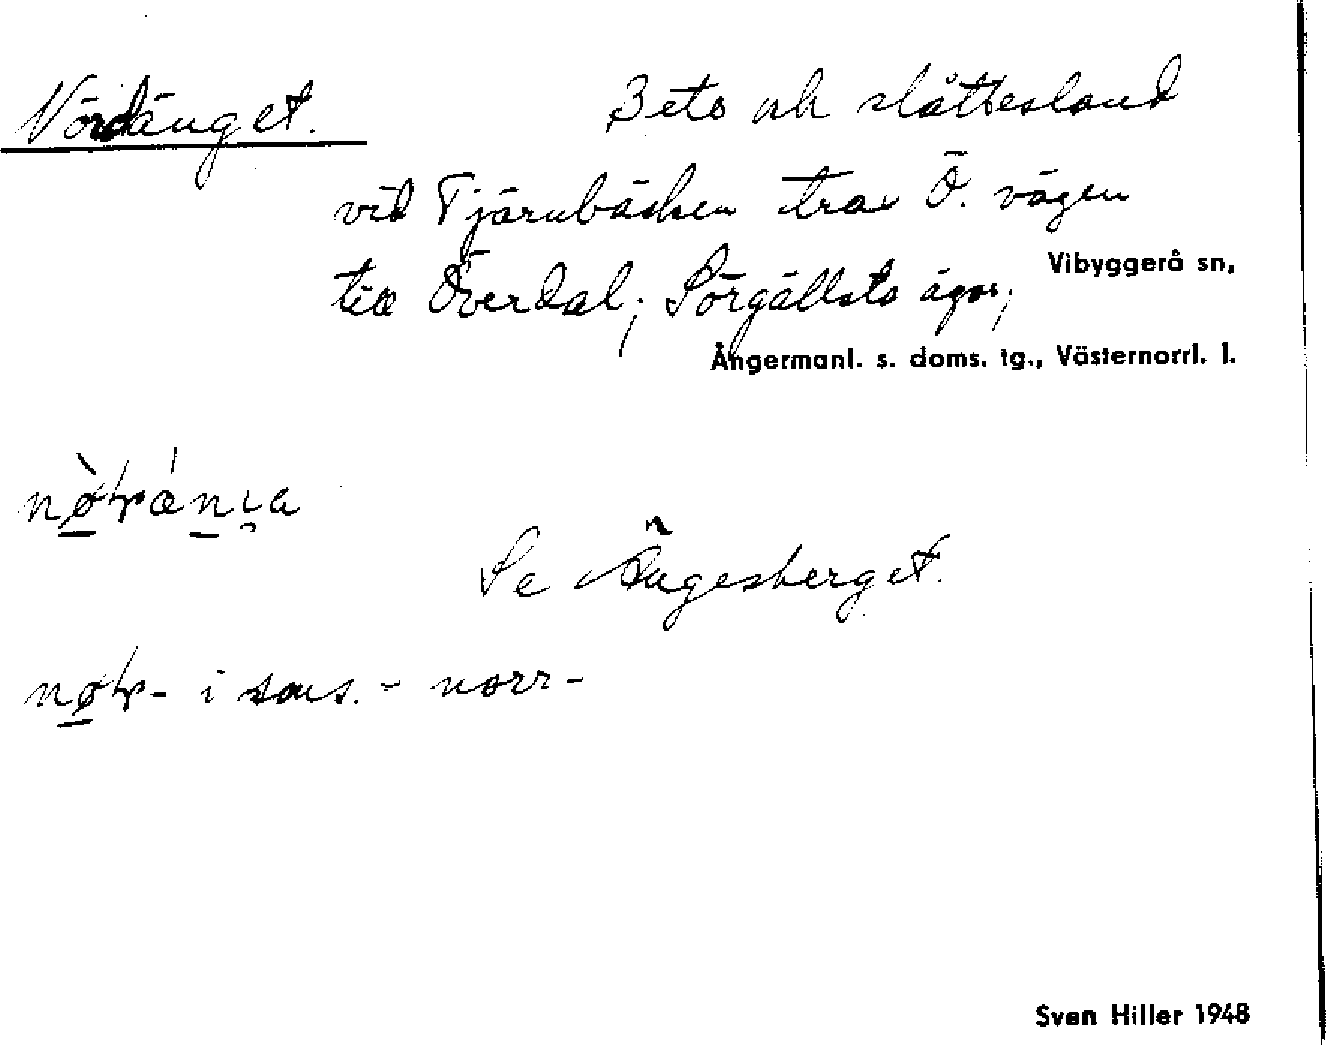 Nördänget. Bets och slåttesland
vid Tjärnbäcken strax Ö. vägen
till Överdal; Sörgällsta ägor;
Vibyggerå sn,
Ångermanl. s. doms. tg., Västernorrl. l.
Se Ängesberget.
i sms. - norr-
Sven Hiller 1948